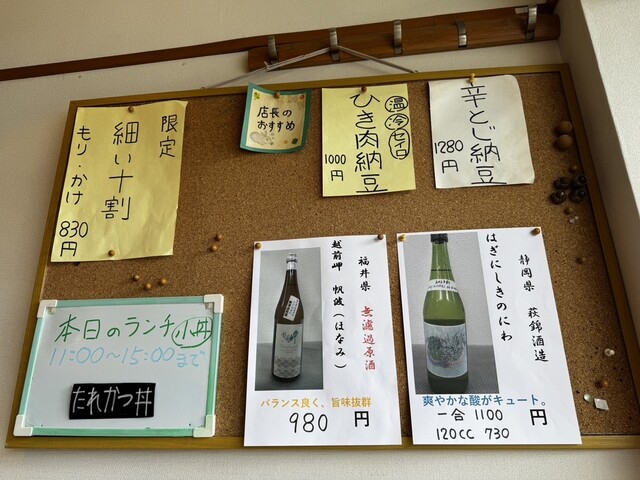 限定
細い十割
もり・かけ 830円
店長の
おすすめ
温 冷 セイロ
ひき肉納豆
1000円
辛とじ納豆
1280円
本日のランチ 小丼
11:00～15:00まで
たれかつ丼
福井県 無濾過原酒
越前岬 帆波（ほなみ）
バランス良く、旨味抜群
980 円
静岡県 萩錦酒造
はぎにしきのにわ
爽やかな酸がキュート。
一合 1100 円
120cc 730